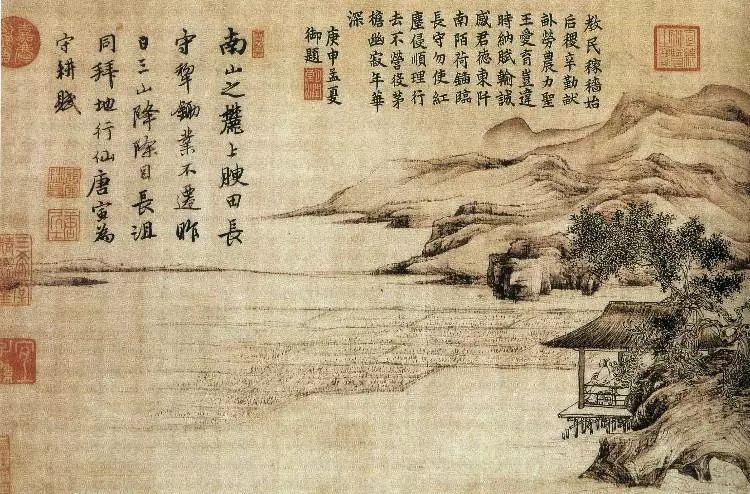 教民稼穡始
后稷辛勤畝
訓勞農力聖
王愛育豈違
時納賦輸誠
感君德東阡
南陌荷鍤臨
長守勿使紅
塵侵順理行
去不營役茅
檐幽寂年華
深
庚申孟夏
御題
南山之麓上腴田長
守犁鋤業不遷昨
日三山降除目長沮
同拜地行仙唐寅為
守耕賦